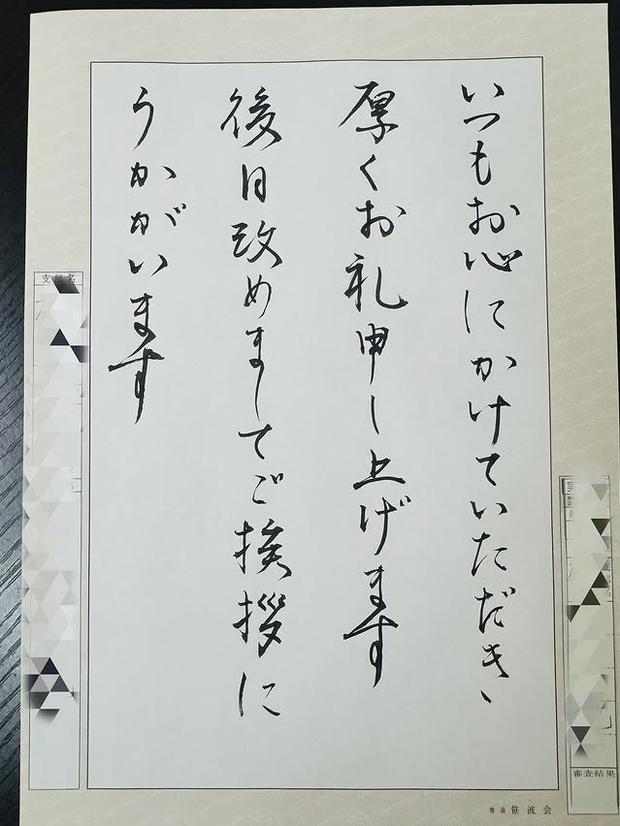 いつもお心にかけていただき、
厚くお礼申し上げます
後日改めましてご挨拶に
うかがいます
審査結果
笹波会